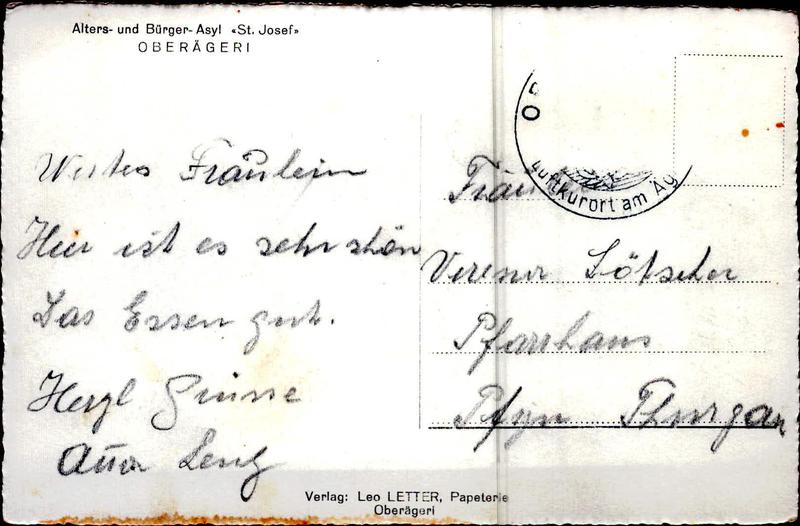 Alters- und Bürger-Asyl «St. Josef»
OBERÄGERI
Wertes Fräulein
Hier ist es sehr schön
Das Essen gut.
Herzl Grüsse
Luftkurort am Äg
Verena Lötscher
Pfarrhaus
Pfyn Thurgau
Verlag: Leo LETTER, Papeterie
Oberägeri